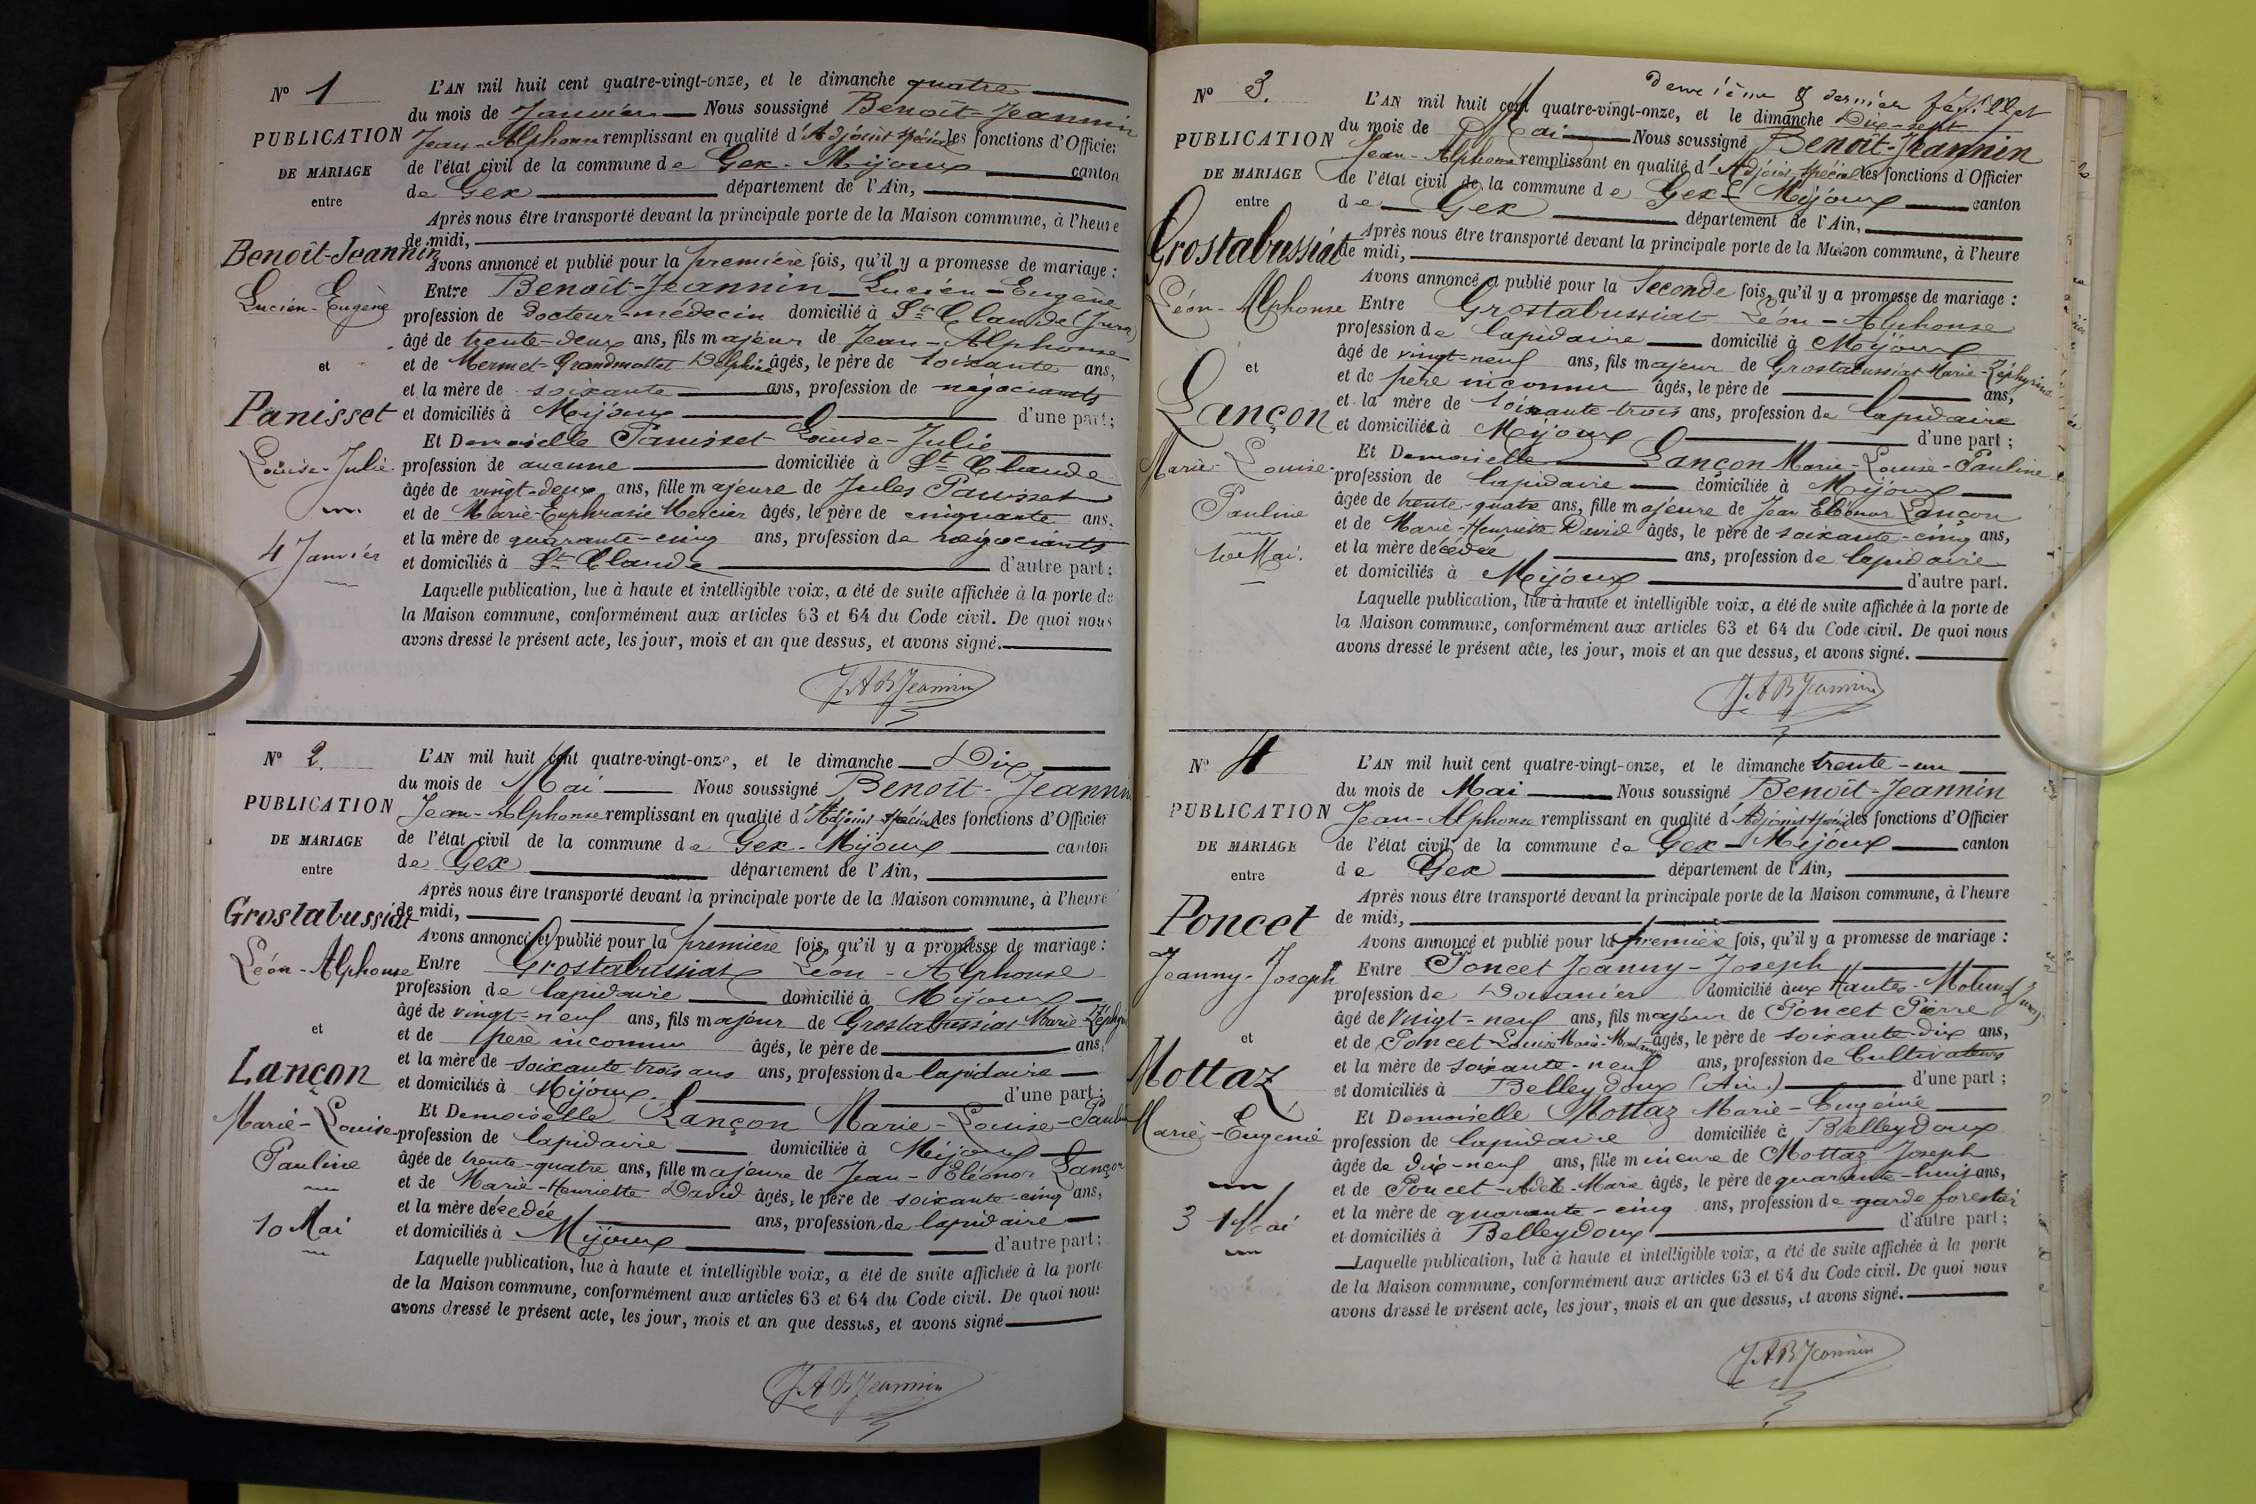 Nº 1
PUBLICATION
DE MARIAGE
entre
Benoît-Jeannin
Lucien-Eugène
et
Panisset
Louise-Julie
4 Janvier
L'AN mil huit cent quatre-vingt-onze, et le dimanche quatre
du mois de Janvier Nous soussigné Benoît-Jeannin
Jean-Alphonse remplissant en qualité d'Adjoint spécial les fonctions d'Officier
de l'état civil de la commune de Gex-Mijoux canton
de Gex département de l'Ain,
Après nous être transporté devant la principale porte de la Maison commune, à l'heure
de midi,
Avons annoncé et publié pour la première fois, qu'il y a promesse de mariage :
Entre Benoit-Jeannin Lucien-Eugène
profession de docteur-médecin domicilié à St Claude (Jura)
âgé de trente-deux ans, fils majeur de Jean-Alphonse
et de Mermet-Grandmottet Delphine âgés, le père de soixante ans,
et la mère de soixante ans, profession de négociants
et domiciliés à Mijoux d'une part ;
Et Demoiselle Panisset Louise-Julie
profession de aucune domiciliée à St Claude
âgée de vingt-deux ans, fille majeure de Jules Panisset
et de Marie-Euphrasie Mercier âgés, le père de cinquante ans,
et la mère de quarante-cinq ans, profession de négociants
et domiciliés à St Claude d'autre part ;
Laquelle publication, lue à haute et intelligible voix, a été de suite affichée à la porte de
la Maison commune, conformément aux articles 63 et 64 du Code civil. De quoi nous
avons dressé le présent acte, les jour, mois et an que dessus, et avons signé.
JABJeannin
Nº 2.
PUBLICATION
DE MARIAGE
entre
Grostabussiat
Léon-Alphonse
et
Lançon
Marie-Louise-
Pauline
10 Mai
L'AN mil huit cent quatre-vingt-onze, et le dimanche Dix
du mois de Mai Nous soussigné Benoît-Jeannin
Jean-Alphonse remplissant en qualité d'Adjoint spécial les fonctions d'Officier
de l'état civil de la commune de Gex-Mijoux canton
de Gex département de l'Ain,
Après nous être transporté devant la principale porte de la Maison commune, à l'heure
de midi,
Avons annoncé et publié pour la première fois, qu'il y a promesse de mariage :
Entre Grostabussiat Léon-Alphonse
profession de lapidaire domicilié à Mijoux
âgé de vingt-neuf ans, fils majeur de Grostabussiat Marie-Zéphyr
et de père inconnu âgés, le père de ans,
et la mère de soixante-trois ans ans, profession de lapidaire
et domiciliés à Mijoux d'une part ;
Et Demoiselle Lançon Marie-Louise-Pauline
profession de lapidaire domiciliée à Mijoux
âgée de trente-quatre ans, fille majeure de Jean-Eléonor Lançon
et de Marie-Henriette David âgés, le père de soixante-cinq ans,
et la mère décédée ans, profession de lapidaire
et domiciliés à Mijoux d'autre part ;
Laquelle publication, lue à haute et intelligible voix, a été de suite affichée à la porte
de la Maison commune, conformément aux articles 63 et 64 du Code civil. De quoi nous
avons dressé le présent acte, les jour, mois et an que dessus, et avons signé
JABJeannin
Deuxième & dernier feuillet
Nº 3.
PUBLICATION
DE MARIAGE
entre
Grostabussiat
Léon-Alphonse
et
Lançon
Marie-Louise-
Pauline
Mai.
L'AN mil huit cent quatre-vingt-onze, et le dimanche Dix-sept
du mois de Mai Nous soussigné Benoît-Jeannin
Jean-Alphonse remplissant en qualité d'Adjoint spécial les fonctions d'Officier
de l'état civil de la commune de Gex-Mijoux canton
de Gex département de l'Ain,
Après nous être transporté devant la principale porte de la Maison commune, à l'heure
de midi,
Avons annoncé et publié pour la Seconde fois, qu'il y a promesse de mariage :
Entre Grostabussiat Léon-Alphonse
profession de lapidaire domicilié à Mijoux
âgé de vingt-neuf ans, fils majeur de Grostabussiat Marie-Zéphyrine
et de père inconnu âgés, le père de ans,
et la mère de soixante-trois ans, profession de lapidaire
et domiciliés à Mijoux d'une part ;
Et Demoiselle Lançon Marie-Louise-Pauline
profession de lapidaire domiciliée à Mijoux
âgée de trente-quatre ans, fille majeure de Jean Eléonor Lançon
et de Marie-Henriette David âgés, le père de soixante-cinq ans,
et la mère décédée ans, profession de lapidaire
et domiciliés à Mijoux d'autre part.
Laquelle publication, lue à haute et intelligible voix, a été de suite affichée à la porte de
la Maison commune, conformément aux articles 63 et 64 du Code civil. De quoi nous
avons dressé le présent acte, les jour, mois et an que dessus, et avons signé.
JABJeannin
Nº 4
PUBLICATION
DE MARIAGE
entre
Poncet
Jeanny-Joseph
et
Mottaz
Marie-Eugénie
31 Mai
L'AN mil huit cent quatre-vingt-onze, et le dimanche trente-un
du mois de Mai Nous soussigné Benoît-Jeannin
Jean-Alphonse remplissant en qualité d'Adjoint spécial les fonctions d'Officier
de l'état civil de la commune de Gex-Mijoux canton
de Gex département de l'Ain,
Après nous être transporté devant la principale porte de la Maison commune, à l'heure
de midi,
Avons annoncé et publié pour la première fois, qu'il y a promesse de mariage :
Entre Poncet Joanny-Joseph
profession de Douanier domicilié aux Hautes-Molunes
âgé de Vingt-neuf ans, fils majeur de Poncet Pierre
et de Poncet Louise Marie- âgés, le père de soixante-dix ans,
et la mère de soixante-neuf ans, profession de Cultivateurs
et domiciliés à Belleydoux (Ain) d'une part ;
Et Demoiselle Mottaz Marie-Eugénie
profession de lapidaire domiciliée à Belleydoux
âgée de dix-neuf ans, fille mineure de Mottaz Joseph
et de Poncet-Adele-Marie âgés, le père de quarante-huit ans,
et la mère de quarante-cinq ans, profession de garde forestier
et domiciliés à Belleydoux d'autre part ;
Laquelle publication, lue à haute et intelligible voix, a été de suite affichée à la porte
de la Maison commune, conformément aux articles 63 et 64 du Code civil. De quoi nous
avons dressé le présent acte, les jour, mois et an que dessus, et avons signé.
JABJeannin